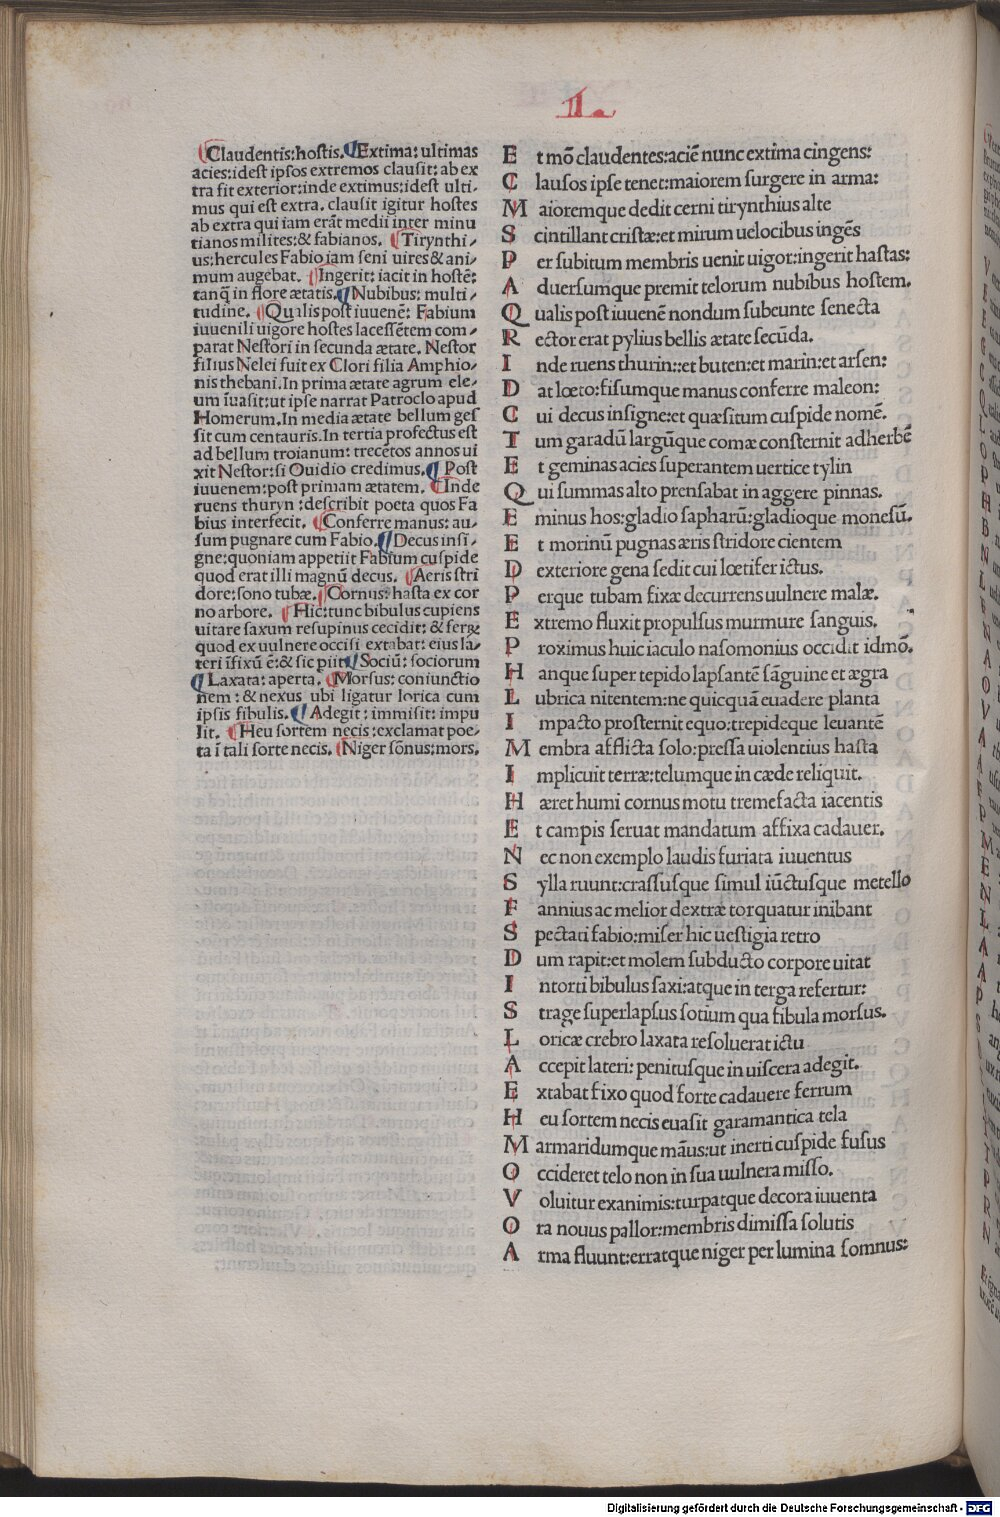 L
Claudentis:hostis. Extima: ultimas
acies:idest ipsos extremos clausit: ab ex
tra sit exterior:inde extimus:idest ulti-
mus qui est extra. clausit igitur hostes
ab extra qui iam erāt medii inter minu
tianos milites:& fabianos. Tirynthi-
us:hercules Fabio iam seni uires & ani-
mum augebat. Ingerit: iacit in hostē:
tanq̄ in flore ætatis. Nubibus: multi-
tudine. Qualis post iuuenē: Fabium
iuuenili uigore hostes lacessētem com-
parat Nestori in secunda ætate. Nestor
filius Nelei fuit ex Clori filia Amphio-
nis thebani. In prima ætate agrum ele-
um īuasit:ut ipse narrat Patroclo apud
Homerum. In media ætate bellum ges
sit cum centauris. In tertia profectus est
ad bellum troianum: trecētos annos ui
xit Nestor:si Ouidio credimus. Post
iuuenem:post primam ætatem. Inde
ruens thuryn :describit poeta quos Fa
bius interfecit. Conferre manus: au-
sum pugnare cum Fabio. Decus insi-
gne:quoniam appetiit Fabium cuspide
quod erat illi magnū decus. Aeris stri
dore:sono tubæ. Cornus: hasta ex cor
no arbore. Hic:tunc bibulus cupiens
uitare saxum resupinus cecidit: & feræ
quod ex uulnere occisi extabat: eius la-
teri īfixū ē:& sic piit Sociū: sociorum
Laxata: aperta. Morsus: coniunctio
nem : & nexus ubi ligatur lorica cum
ipsis fibulis. Adegit: immisit: impu
lit. Heu sortem necis :exclamat poe-
ta ī tali sorte necis. Niger sōnus:mors.
E t mō claudentes:aciē nunc extima cingens:
C lausos ipse tenet:maiorem surgere in arma:
M aioremque dedit cerni tirynthius alte
S cintillant cristæ:et mirum uelocibus ingēs
P er subitum membris uenit uigor:ingerit hastas:
A duersumque premit telorum nubibus hostem.
Q ualis post iuuenē nondum subeunte senecta
R ector erat pylius bellis ætate secūda.
I nde ruens thurin::et buten:et marin:et arsen:
D at lœto:fisumque manus conferre maleon:
C ui decus insigne:et quæsitum cuspide nomē.
T um garadū largūque comæ consternit adherbē
E t geminas acies superantem uertice tylin
Q ui summas alto prensabat in aggere pinnas.
E minus hos:gladio sapharū:gladioque monesū.
E t morinū pugnas æris stridore cientem
D exteriore gena sedit cui lœtifer ictus.
P erque tubam fixæ decurrens uulnere malæ.
E xtremo fluxit propulsus murmure sanguis.
P roximus huic iaculo nasomonius occidit idmō.
H anque super tepido lapsantē sāguine et ægra
L ubrica nitentem:ne quicquā euadere planta
I mpacto prosternit equo:trepideque leuantē
M embra afflicta solo:pressa uiolentius hasta
I mplicuit terræ:telumque in cæde reliquit.
H æret humi cornus motu tremefacta iacentis
E t campis seruat mandatum affixa cadauer.
N ec non exemplo laudis furiata iuuentus
S ylla ruunt:crassusque simul iūctusque metello
F annius ac melior dextræ torquatur inibant
S pectati fabio:miser hic uestigia retro
D um rapit:et molem subducto corpore uitat
I ntorti bibulus saxi:atque in terga refertur:
S trage superlapsus sotium qua fibula morsus.
L oricæ crebro laxata resoluerat ictu
A ccepit lateri: penitusque in uiscera adegit.
E xtabat fixo quod forte cadauere ferrum
H eu sortem necis euasit garamantica tela
M armaridumque māus:ut inerti cuspide fusus
O ccideret telo non in sua uulnera misso.
V oluitur exanimis:turpatque decora iuuenta
O ra nouus pallor:membris dimissa solutis
A rma fluunt:erratque niger per lumina somnus:
Digitalisierung gefördert durch die Deutsche Forschungsgemeinschaft - DFG